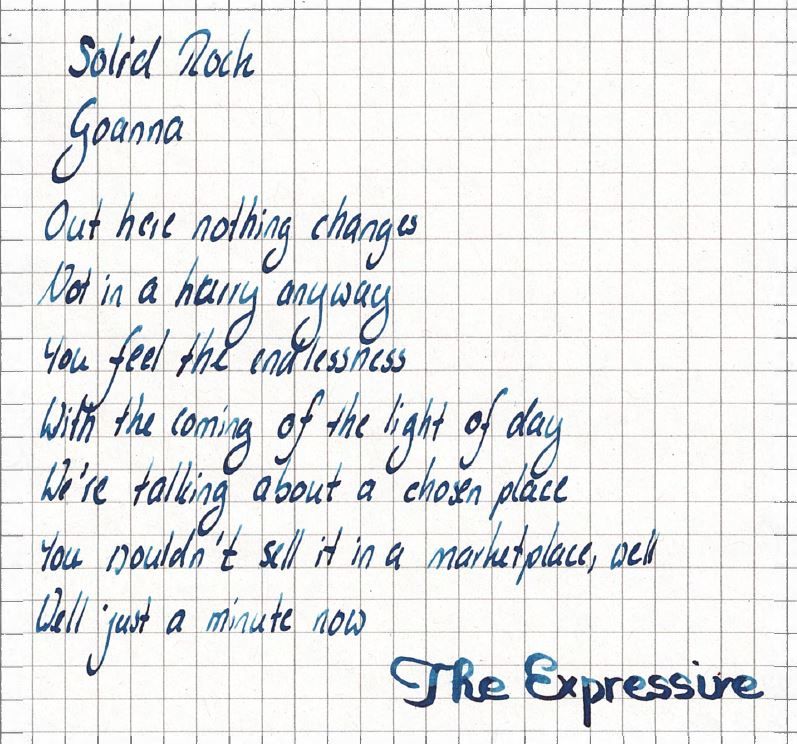 Solid Rock
Goanna
Out here nothing changes
Not in a hurry anyway
You feel the endlessness
With the coming of the light of day
We're talking about a chosen place
You wouldn't sell it in a marketplace, well
Well just a minute now
The Expressive